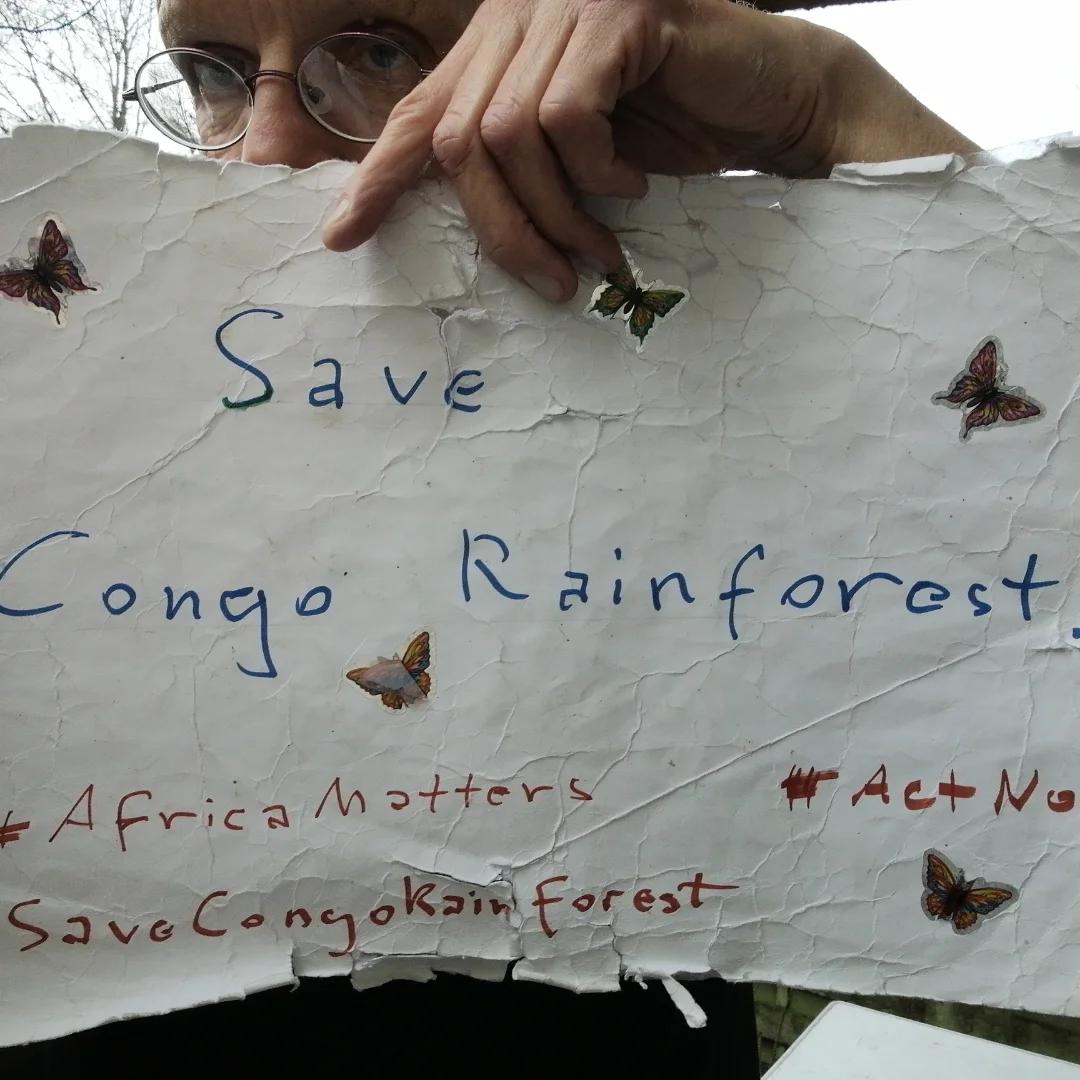 Save
Congo Rainforest.
#AfricaMatters #ActNo
SaveCongoRainforest